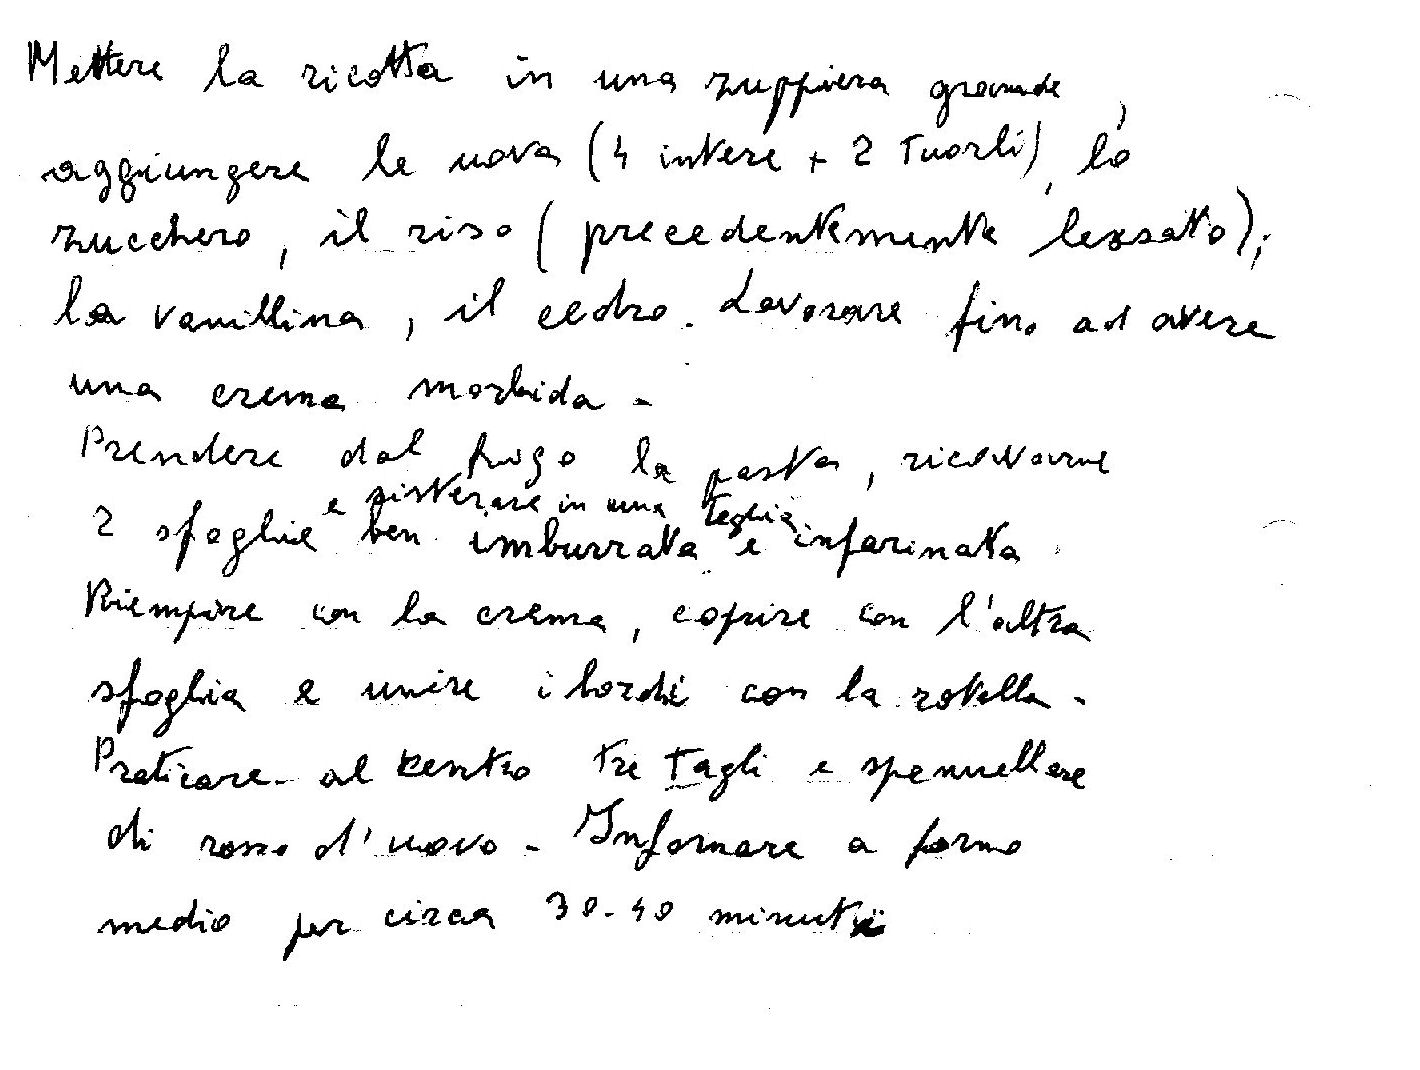 Mettere la ricotta in una zuppiera grande,
aggiungere le uova (4 intere + 2 tuorli), lo
zucchero, il riso (precedentemente lessato),
la vanillina, il cedro. Lavorare fino ad avere
una crema morbida -
Prendere dal frigo la pasta, ricavarne
e sistemare in una teglia
2 sfoglie ben imburrata e infarinata
Riempire con la crema, coprire con l'altra
sfoglia e unire i bordi con la rotella -
Praticare al centro tre tagli e spennellare
di rosso d'uovo - Infornare a forno
medio per circa 30-40 minuti